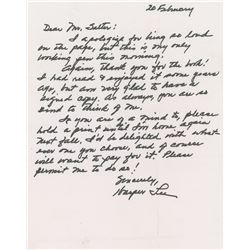 20 February
Dear Mr.
I apologize for being so loud
on the page, but this is my only
working pen this morning.
thank you for the book!
I had read & enjoyed it some years
ago, but am very glad to have a
signed copy. As always, you are so
kind to think of me.
If you are of a mind to, please
hold a print until I'm home again
next fall, I'd be delighted with what
ever one you choose, and of course
will want to pay for it. Please
permit me to do so!
Sincerely,
Harper Lee